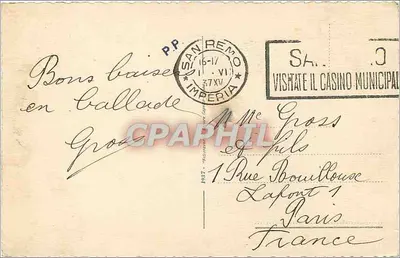 P.P.
SAN REMO
16-17
1 VI
37XV
IMPERIA
SAN REMO
VISITATE IL CASINO MUNICIPAL
Bons baisers
en ballade
Gross
M Mme Gross
et fils
1 Rue Bouillouse
Lafont 1
Paris
France
CPAPHIL